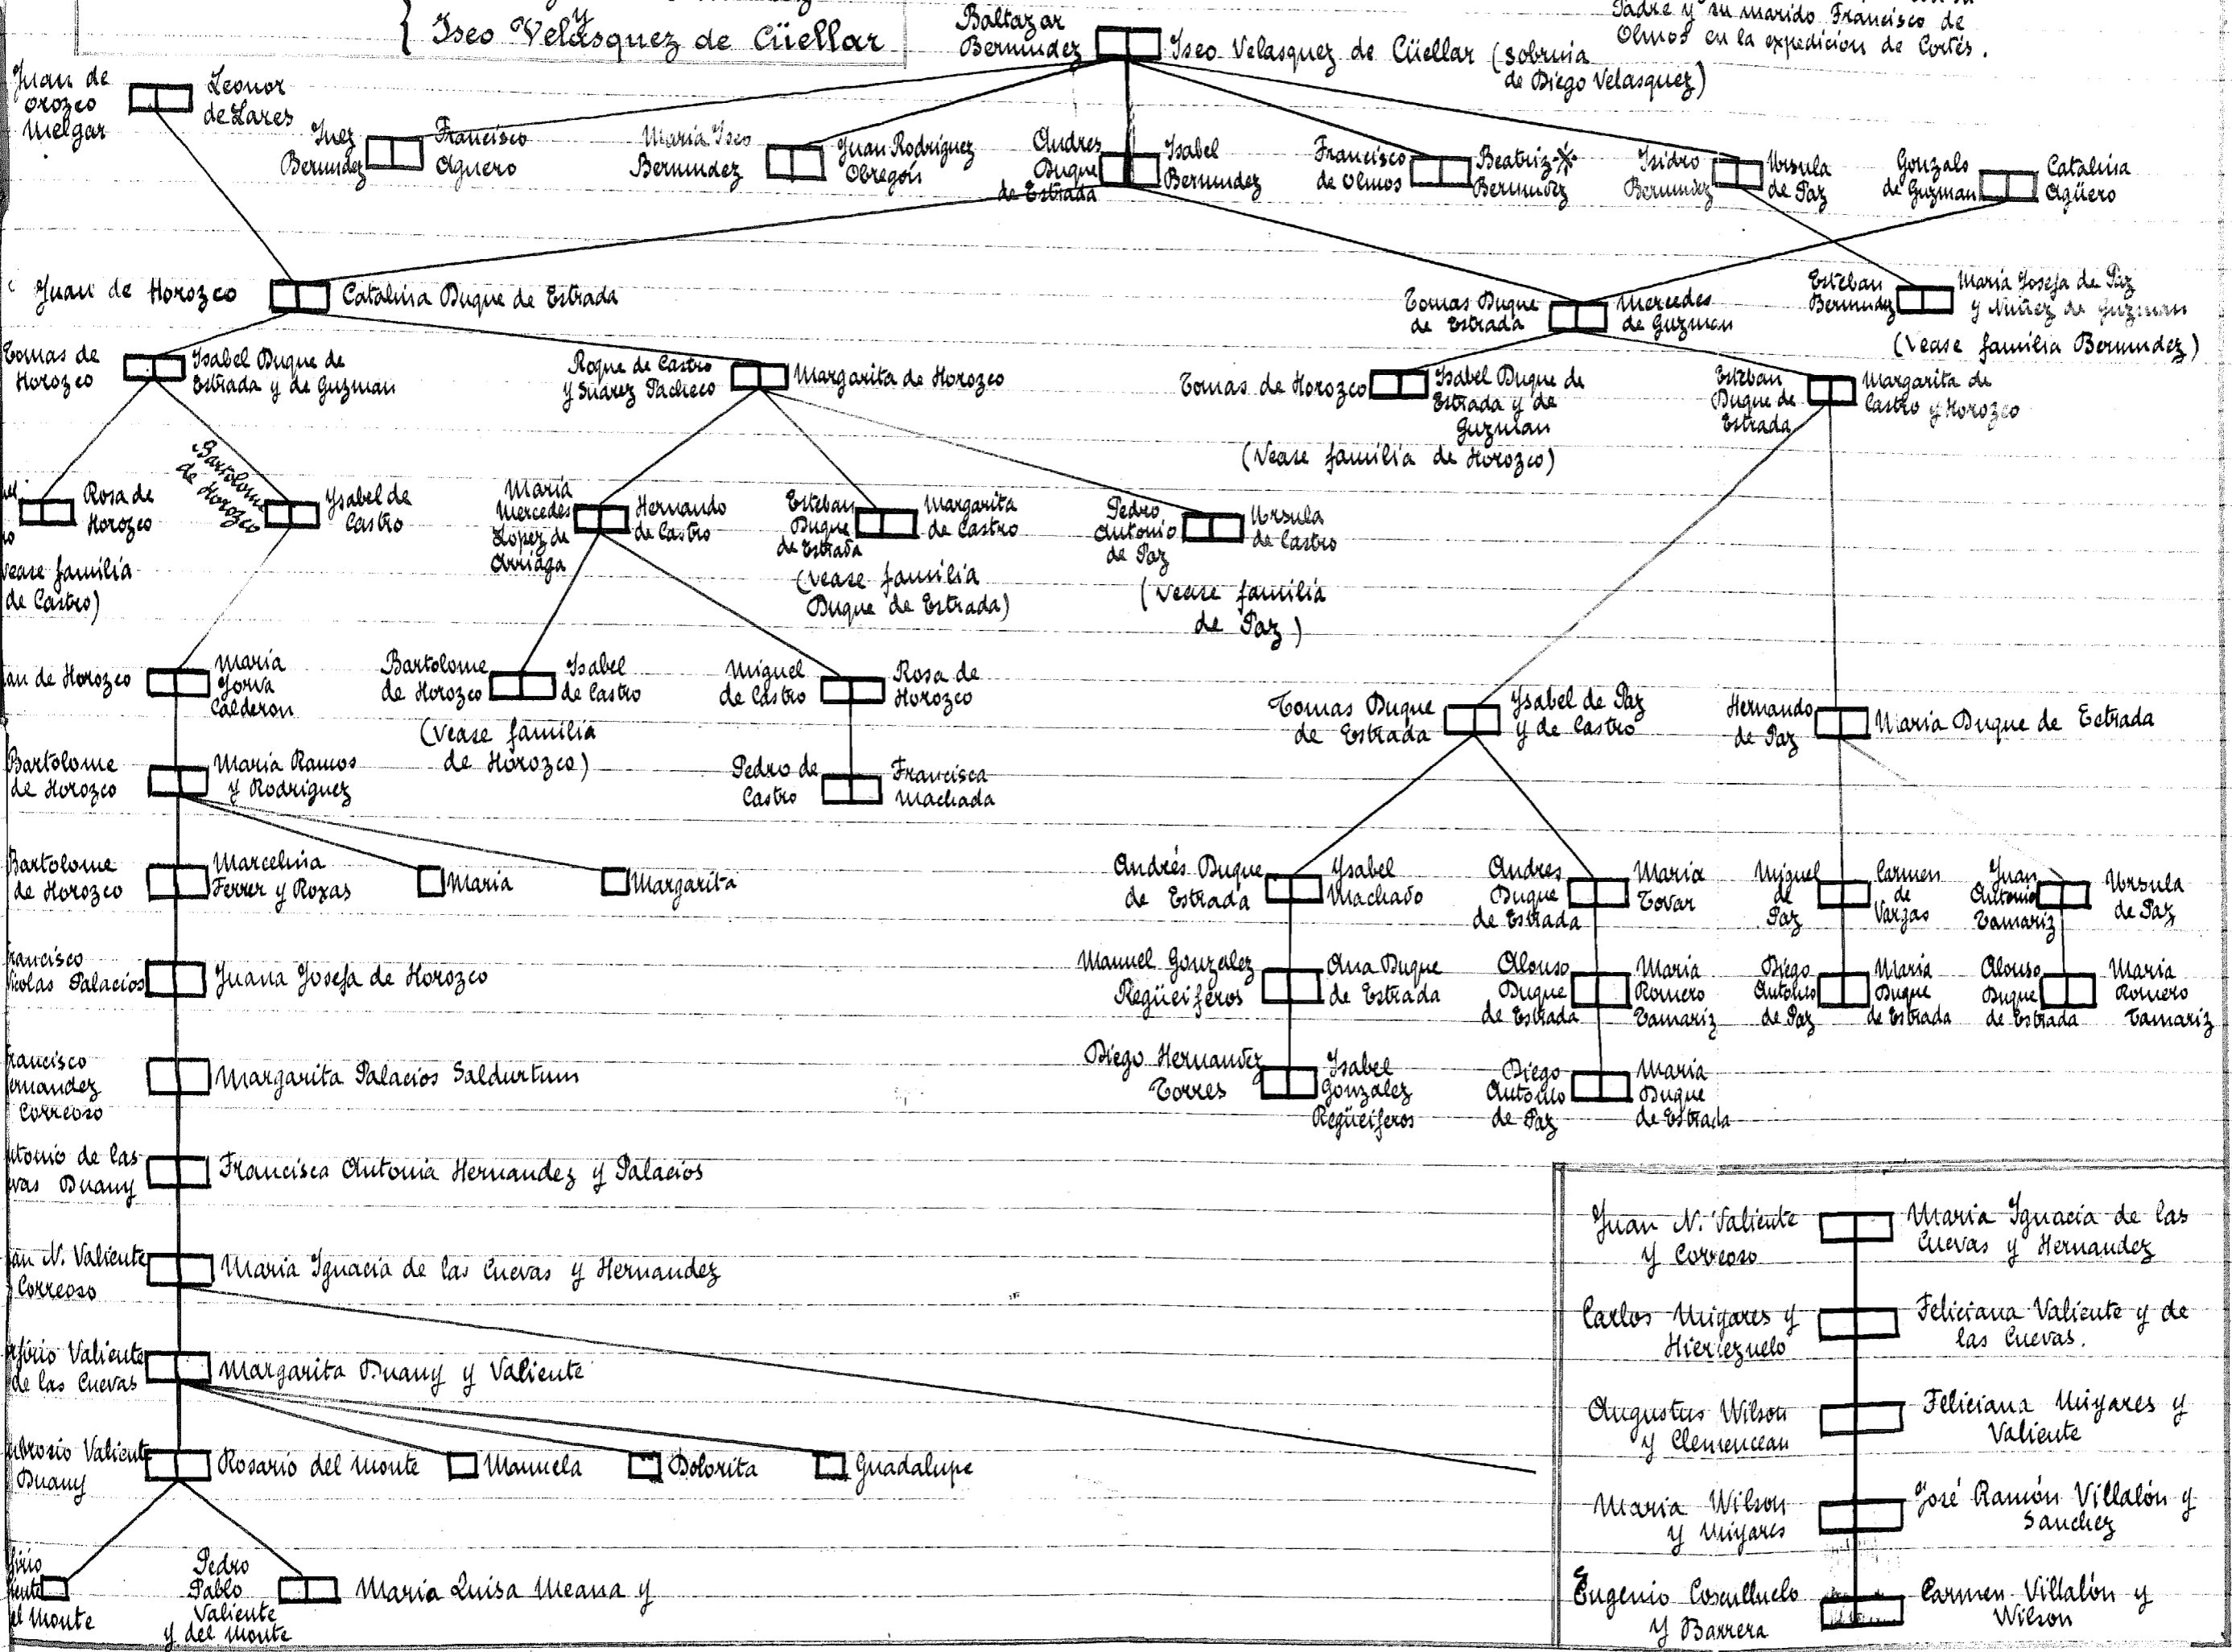 Iseo Velásquez de Cüellar
Baltazar
Bermudez
Iseo Velasquez de Cüellar (sobrina
de Diego Velasquez)
Padre y su marido Francisco de
Olmos en la expedición de Cortés.
Juan de
Orozco
Melgar
Leonor
de Lares
Inez
Bermudez
Francisco
Aguero
Maria Iseo
Bermudez
Juan Rodriguez
Obregón
Andres
Duque
de Estrada
Isabel
Bermudez
Francisco
de Olmos
Beatriz
Bermudez
Isidro
Bermudez
Ursula
de Paz
Gonzalo
de Guzman
Catalina
Agüero
Juan de Horozco
Catalina Duque de Estrada
Tomas Duque
de Estrada
Mercedes
de Guzman
Esteban
Bermudez
Maria Josefa de Paz
y Nuñez de Guzman
(Vease familia Bermudez)
Tomas de
Horozco
Isabel Duque de
Estrada y de Guzman
Roque de Castro
y Suárez Pacheco
Margarita de Horozco
Tomas de Horozco
Isabel Duque de
Estrada y de
Guzman
(Vease familia de Horozco)
Esteban
Duque de
Estrada
Margarita de
Castro y Horozco
Rosa de
Horozco
vease familia
de Castro)
Bartolome
de Horozco
Ysabel de
Castro
Maria
Mercedes
Lopez de
Arriaga
Hernando
de Castro
Esteban
Duque
de Estrada
Margarita
de Castro
(vease familia
Duque de Estrada)
Pedro
Antonio
de Paz
Ursula
de Castro
(vease familia
de Paz)
an de Horozco
Maria
Calderon
Bartolome
de Horozco
Isabel
de Castro
(vease familia
de Horozco)
Miguel
de Castro
Rosa de
Horozco
Tomas Duque
de Estrada
Ysabel de Paz
y de Castro
Hernando
de Paz
Maria Duque de Estrada
Bartolome
de Horozco
Maria Ramos
y Rodriguez
Pedro de
Castro
Francisca
Machada
Bartolome
de Horozco
Marcelina
Ferrer y Roxas
Maria
Margarita
Andrés Duque
de Estrada
Ysabel
Machado
Andres
Duque
de Estrada
Maria
Tovar
Miguel
de
Paz
Carmen
de
Vargas
Juan
Antonio
Tamariz
Ursula
de Paz
rancisco
icolas Palacios
Juana Josefa de Horozco
Manuel Gonzalez
Regüeiferos
Ana Duque
de Estrada
Alonso
Duque
de Estrada
Maria
Romero
Tamariz
Diego
Antonio
de Paz
Maria
Duque
de Estrada
Alonso
Duque
de Estrada
Maria
Romero
Tamariz
rancisco
ernandez
Correoso
Margarita Palacios Saldurtum
Diego Hernandez
Torres
Isabel
Gonzalez
Regüeiferos
Diego
Antonio
de Paz
Maria
Duque
de Estrada
ntonio de las
vas Duany
Francisca Antonia Hernandez y Palacios
an N. Valiente
Correoso
Maria Ignacia de las Cuevas y Hernandez
rfirio Valiente
de las Cuevas
Margarita Duany y Valiente
mbrosio Valiente
Duany
Rosario del Monte
Manuela
Dolorita
Guadalupe
firio
iente
el Monte
Pedro
Pablo
Valiente
y del Monte
Maria Luisa Meana y
Juan N. Valiente
y Correoso
Maria Ignacia de las
Cuevas y Hernandez
Carlos Miyares y
Hierrezuelo
Feliciana Valiente y de
las Cuevas.
Augustus Wilson
y Clemenceau
Feliciana Miyares y
Valiente
Maria Wilson
y Miyares
José Ramón Villalón y
Sanchez
Eugenio Cosculluelo
y Barrera
Carmen Villalón y
Wilson